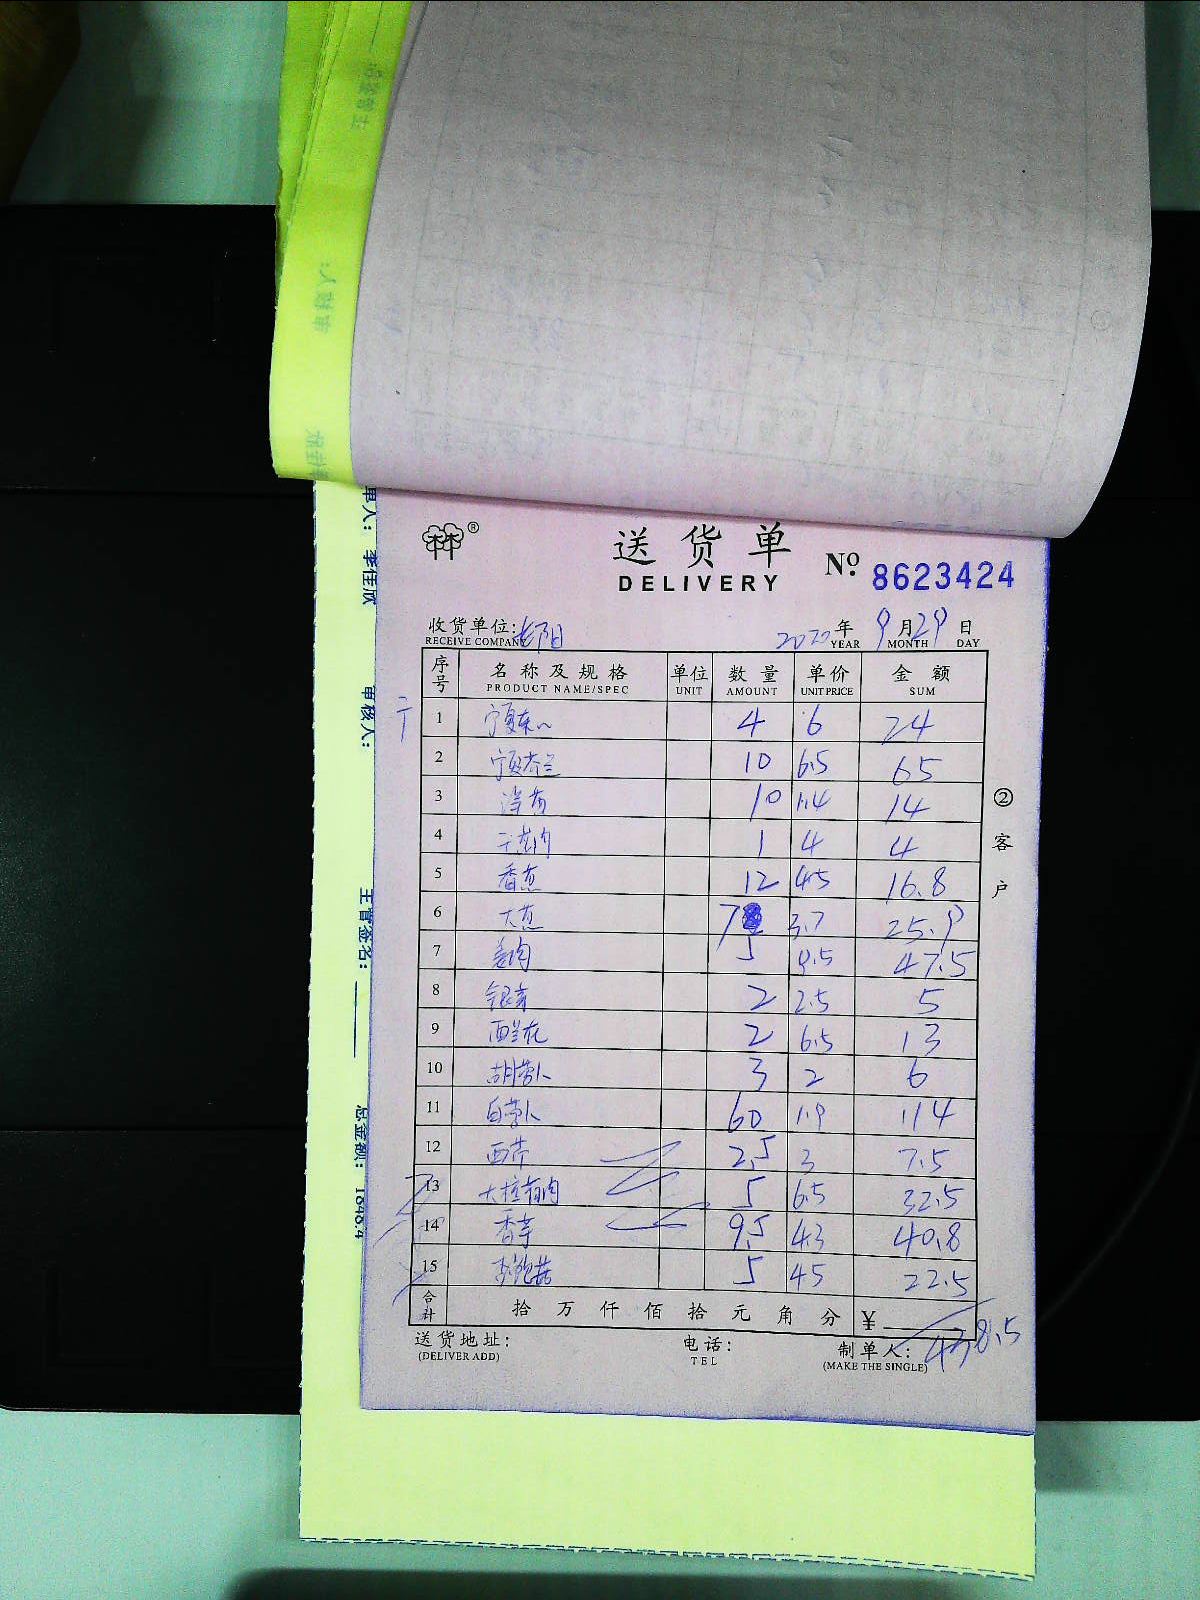 送货单
DELIVERY
No. 8623424
收货单位: 长阳 2020年 9月29日
RECEIVE COMPAN YEAR MONTH DAY
序号 名称及规格 单位 数量 单价 金额
PRODUCT NAME/SPEC UNIT AMOUNT UNIT PRICE SUM
1 4 6 24
2 10 6.5 65
3 10 1.4 14
4 1 4 4
5 香葱 12 16.8
6 大葱 7 3.7 25.9
7 姜肉 5 9.5 47.5
8 银芽 2 2.5 5
9 西兰花 2 6.5 13
10 胡萝卜 3 2 6
11 白萝卜 60 1.9 114
12 西芹 2.5 3 7.5
13 5 6.5 32.5
14 香芋 9.5 4.3 40.8
15 5 4.5 22.5
合计 拾 万 仟 佰 拾 元 角 分 ¥
438.5
送货地址: 电话: 制单人:
(DELIVER ADD) TEL (MAKE THE SINGLE)
② 客户
单人: 李佳欣
审核人:
主管签名:
总金额: 1848.4